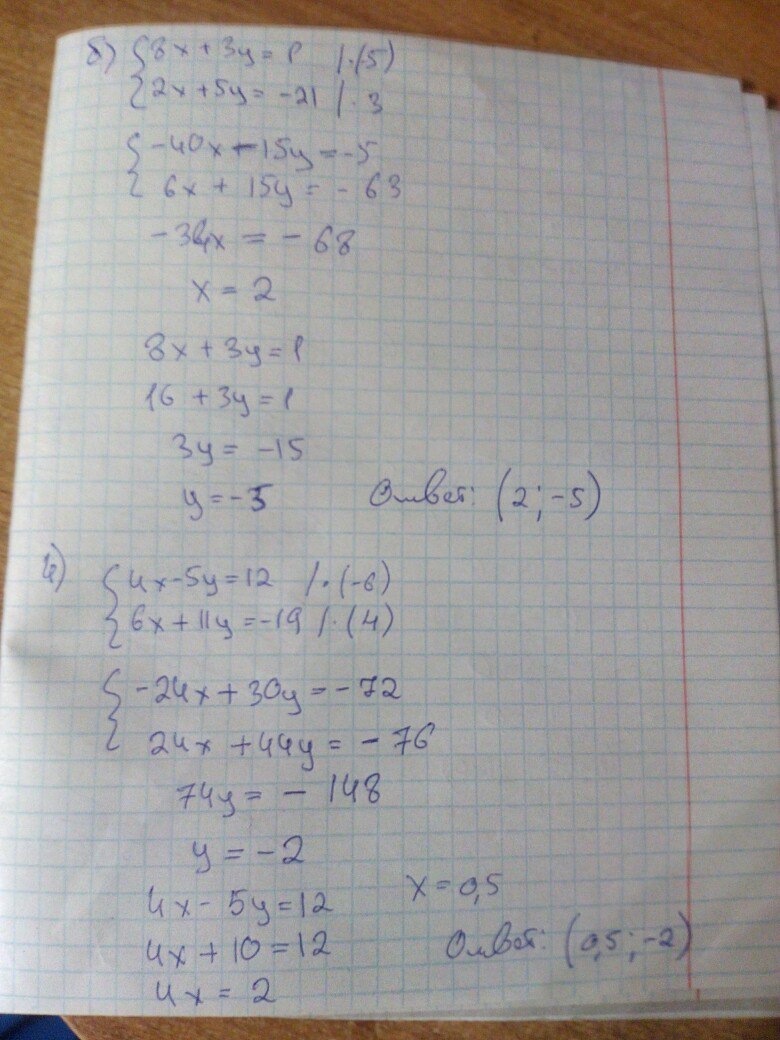 б) { 8x + 3y = 1 /·(5)
{ 2x + 5y = -21 /·3
{ -40x - 15y = -5
{ 6x + 15y = -63
-34x = -68
x = 2
8x + 3y = 1
16 + 3y = 1
3y = -15
y = -5 Ответ: (2; -5)
{ 4x - 5y = 12 /·(-6)
{ 6x + 11y = -19 /·(4)
{ -24x + 30y = -72
24x + 44y = -76
74y = -148
y = -2
4x - 5y = 12 x = 0,5
4x + 10 = 12 Ответ: (0,5; -2)
4x = 2